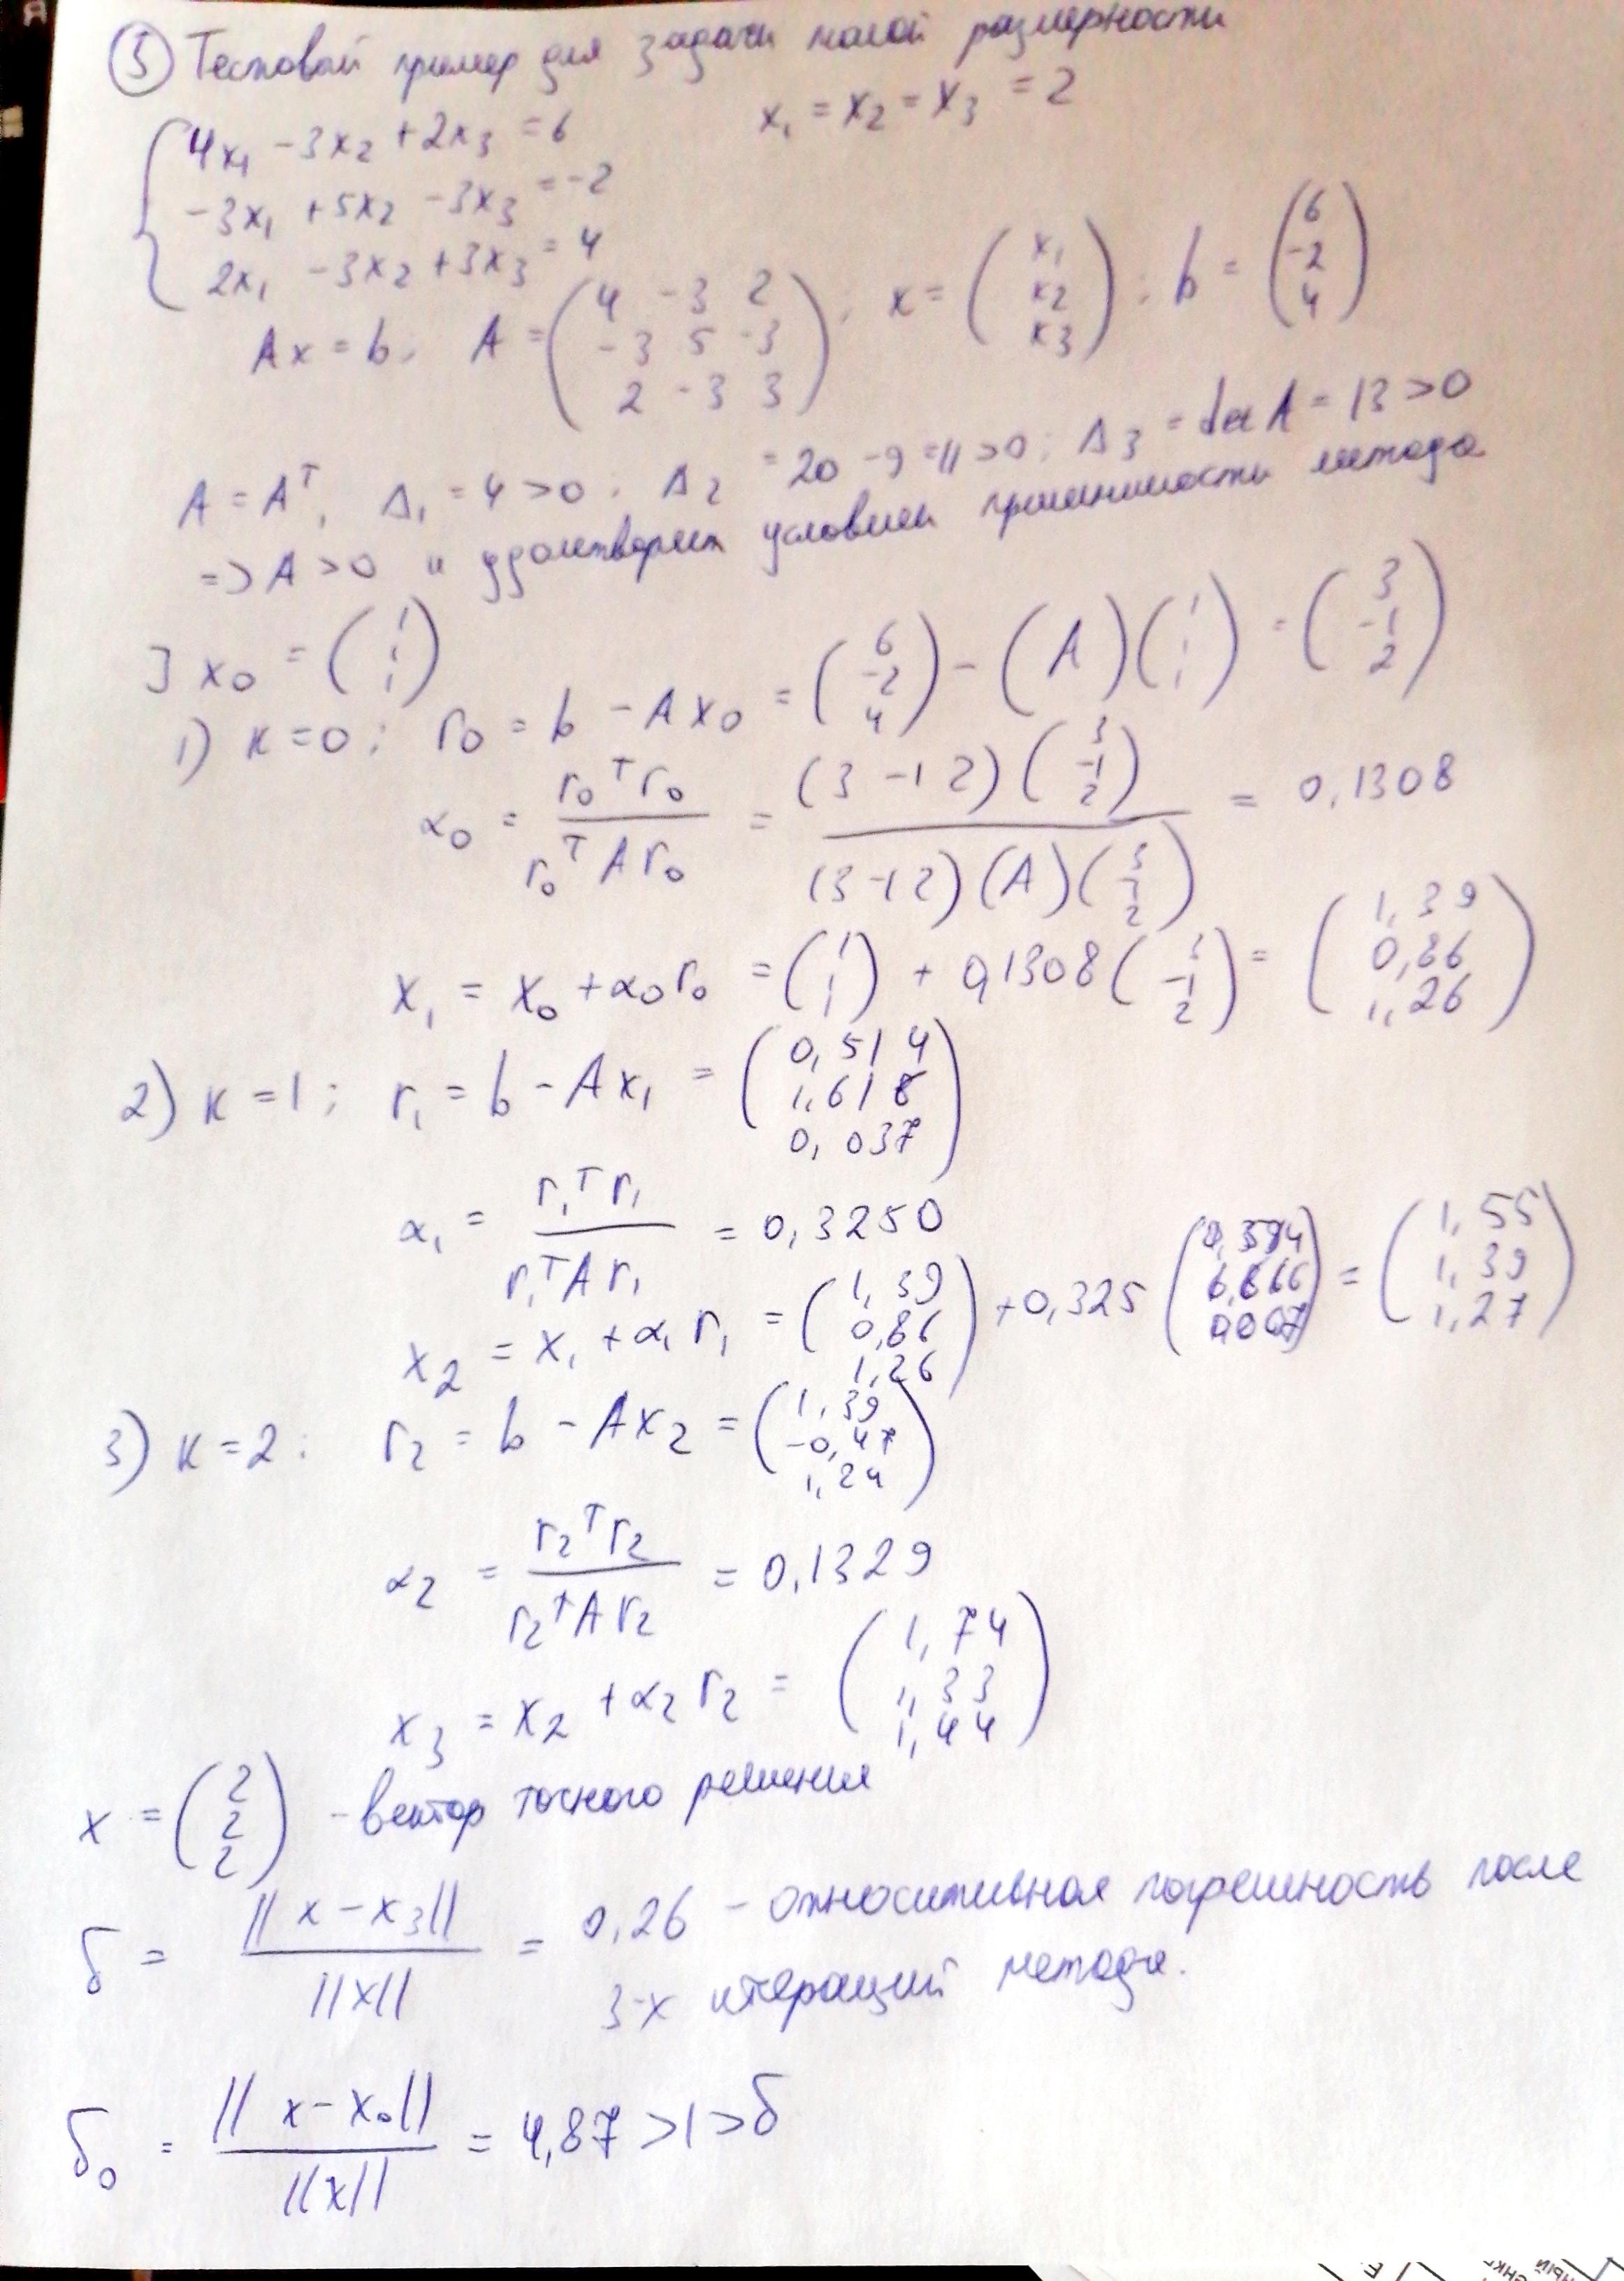 ⑤ Тестовый пример для задачи малой размерности
4x₁ - 3x₂ + 2x₃ = 6
x₁ = x₂ = x₃ = 2
-3x₁ + 5x₂ - 3x₃ = -2
2x₁ - 3x₂ + 3x₃ = 4
Ax = b, A = (4 -3 2; -3 5 -3; 2 -3 3); x = (x₁; x₂; x₃); b = (6; -2; 4)
A = Aᵀ, Δ₁ = 4 > 0; Δ₂ = 20 - 9 = 11 > 0; Δ₃ = det A = 13 > 0
=> A > 0 и удолетворяет условиям применимости метода
] x₀ = (1; 1; 1)
1) k = 0; r₀ = b - Ax₀ = (6; -2; 4) - (A)(1; 1; 1) = (3; -1; 2)
α₀ = r₀ᵀr₀ / r₀ᵀAr₀ = (3 -1 2)(3; -1; 2) / (3 -1 2)(A)(3; -1; 2) = 0,1308
x₁ = x₀ + α₀r₀ = (1; 1) + 0,1308(3; -1; 2) = (1,39; 0,86; 1,26)
2) k = 1; r₁ = b - Ax₁ = (0,514; 1,618; 0,037)
α₁ = r₁ᵀr₁ / r₁ᵀAr₁ = 0,3250
x₂ = x₁ + α₁r₁ = (1,39; 0,86; 1,26) + 0,325 = (1,55; 1,39; 1,27)
3) k = 2: r₂ = b - Ax₂ = (1,39; -0,47; 1,24)
α₂ = r₂ᵀr₂ / r₂ᵀAr₂ = 0,1329
x₃ = x₂ + α₂r₂ = (1,74; 1,33; 1,44)
x = (2; 2; 2) - вектор точного решения
δ = ||x - x₃|| / ||x|| = 0,26 - относительная погрешность после
3-х итераций метода.
δ₀ = ||x - x₀|| / ||x|| = 4,87 > 1 > δ